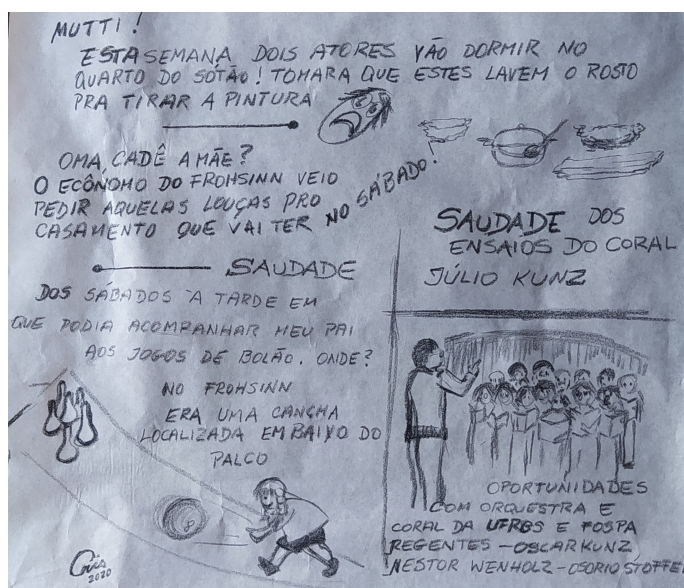 MUTTI!
ESTA SEMANA DOIS ATORES VÃO DORMIR NO
QUARTO DO SOTÃO! TOMARA QUE ESTES LAVEM O ROSTO
PRA TIRAR A PINTURA
OMA, CADÊ A MÃE?
O ECÔNOMO DO FROHSINN VEIO
PEDIR AQUELAS LOUÇAS PRO
CASAMENTO QUE VAI TER NO SÁBADO!
SAUDADE
DOS SÁBADOS À TARDE EM
QUE PODIA ACOMPANHAR MEU PAI
AOS JOGOS DE BOLÃO. ONDE?
NO FROHSINN
ERA UMA CANCHA
LOCALIZADA EMBAIXO DO
PALCO
2020
SAUDADE DOS
ENSAIOS DO CORAL
JÚLIO KUNZ
OPORTUNIDADES
COM ORQUESTRA E
CORAL DA UFRGS E FOSPA
REGENTES - OSCAR KUNZ
NESTOR WENHOLZ - OSORIO STOFFEL